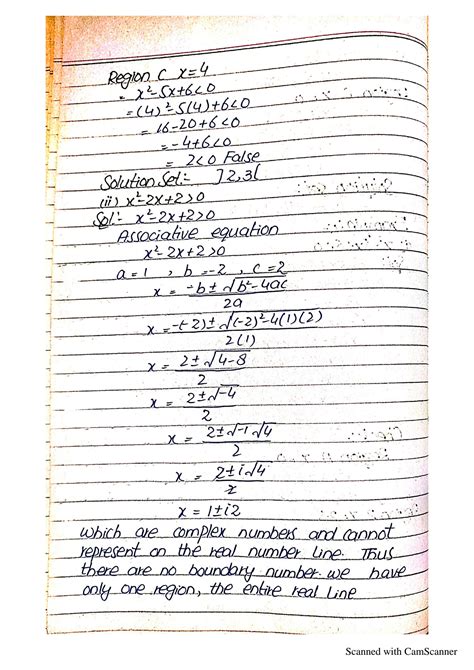 Region C x=4
= x²-5x+6<0
= (4)²-5(4)+6<0
= 16-20+6<0
= -4+6<0
= 2<0 False
Solution Set:- ]2,3[
(ii) x²-2x+2>0
Sol:- x²-2x+2>0
Associative equation
x²-2x+2>0
a=1 , b=-2 , c=2
x = -b±√b²-4ac
2a
x = -(-2)±√(-2)²-4(1)(2)
2(1)
x = 2±√4-8
2
x = 2±√-4
2
x = 2±√-1 √4
2
x = 2±i√4
2
x = 1±i2
which are complex numbers and cannot
represent on the real number line. Thus
there are no boundary number. we have
only one region, the entire real Line
Scanned with CamScanner